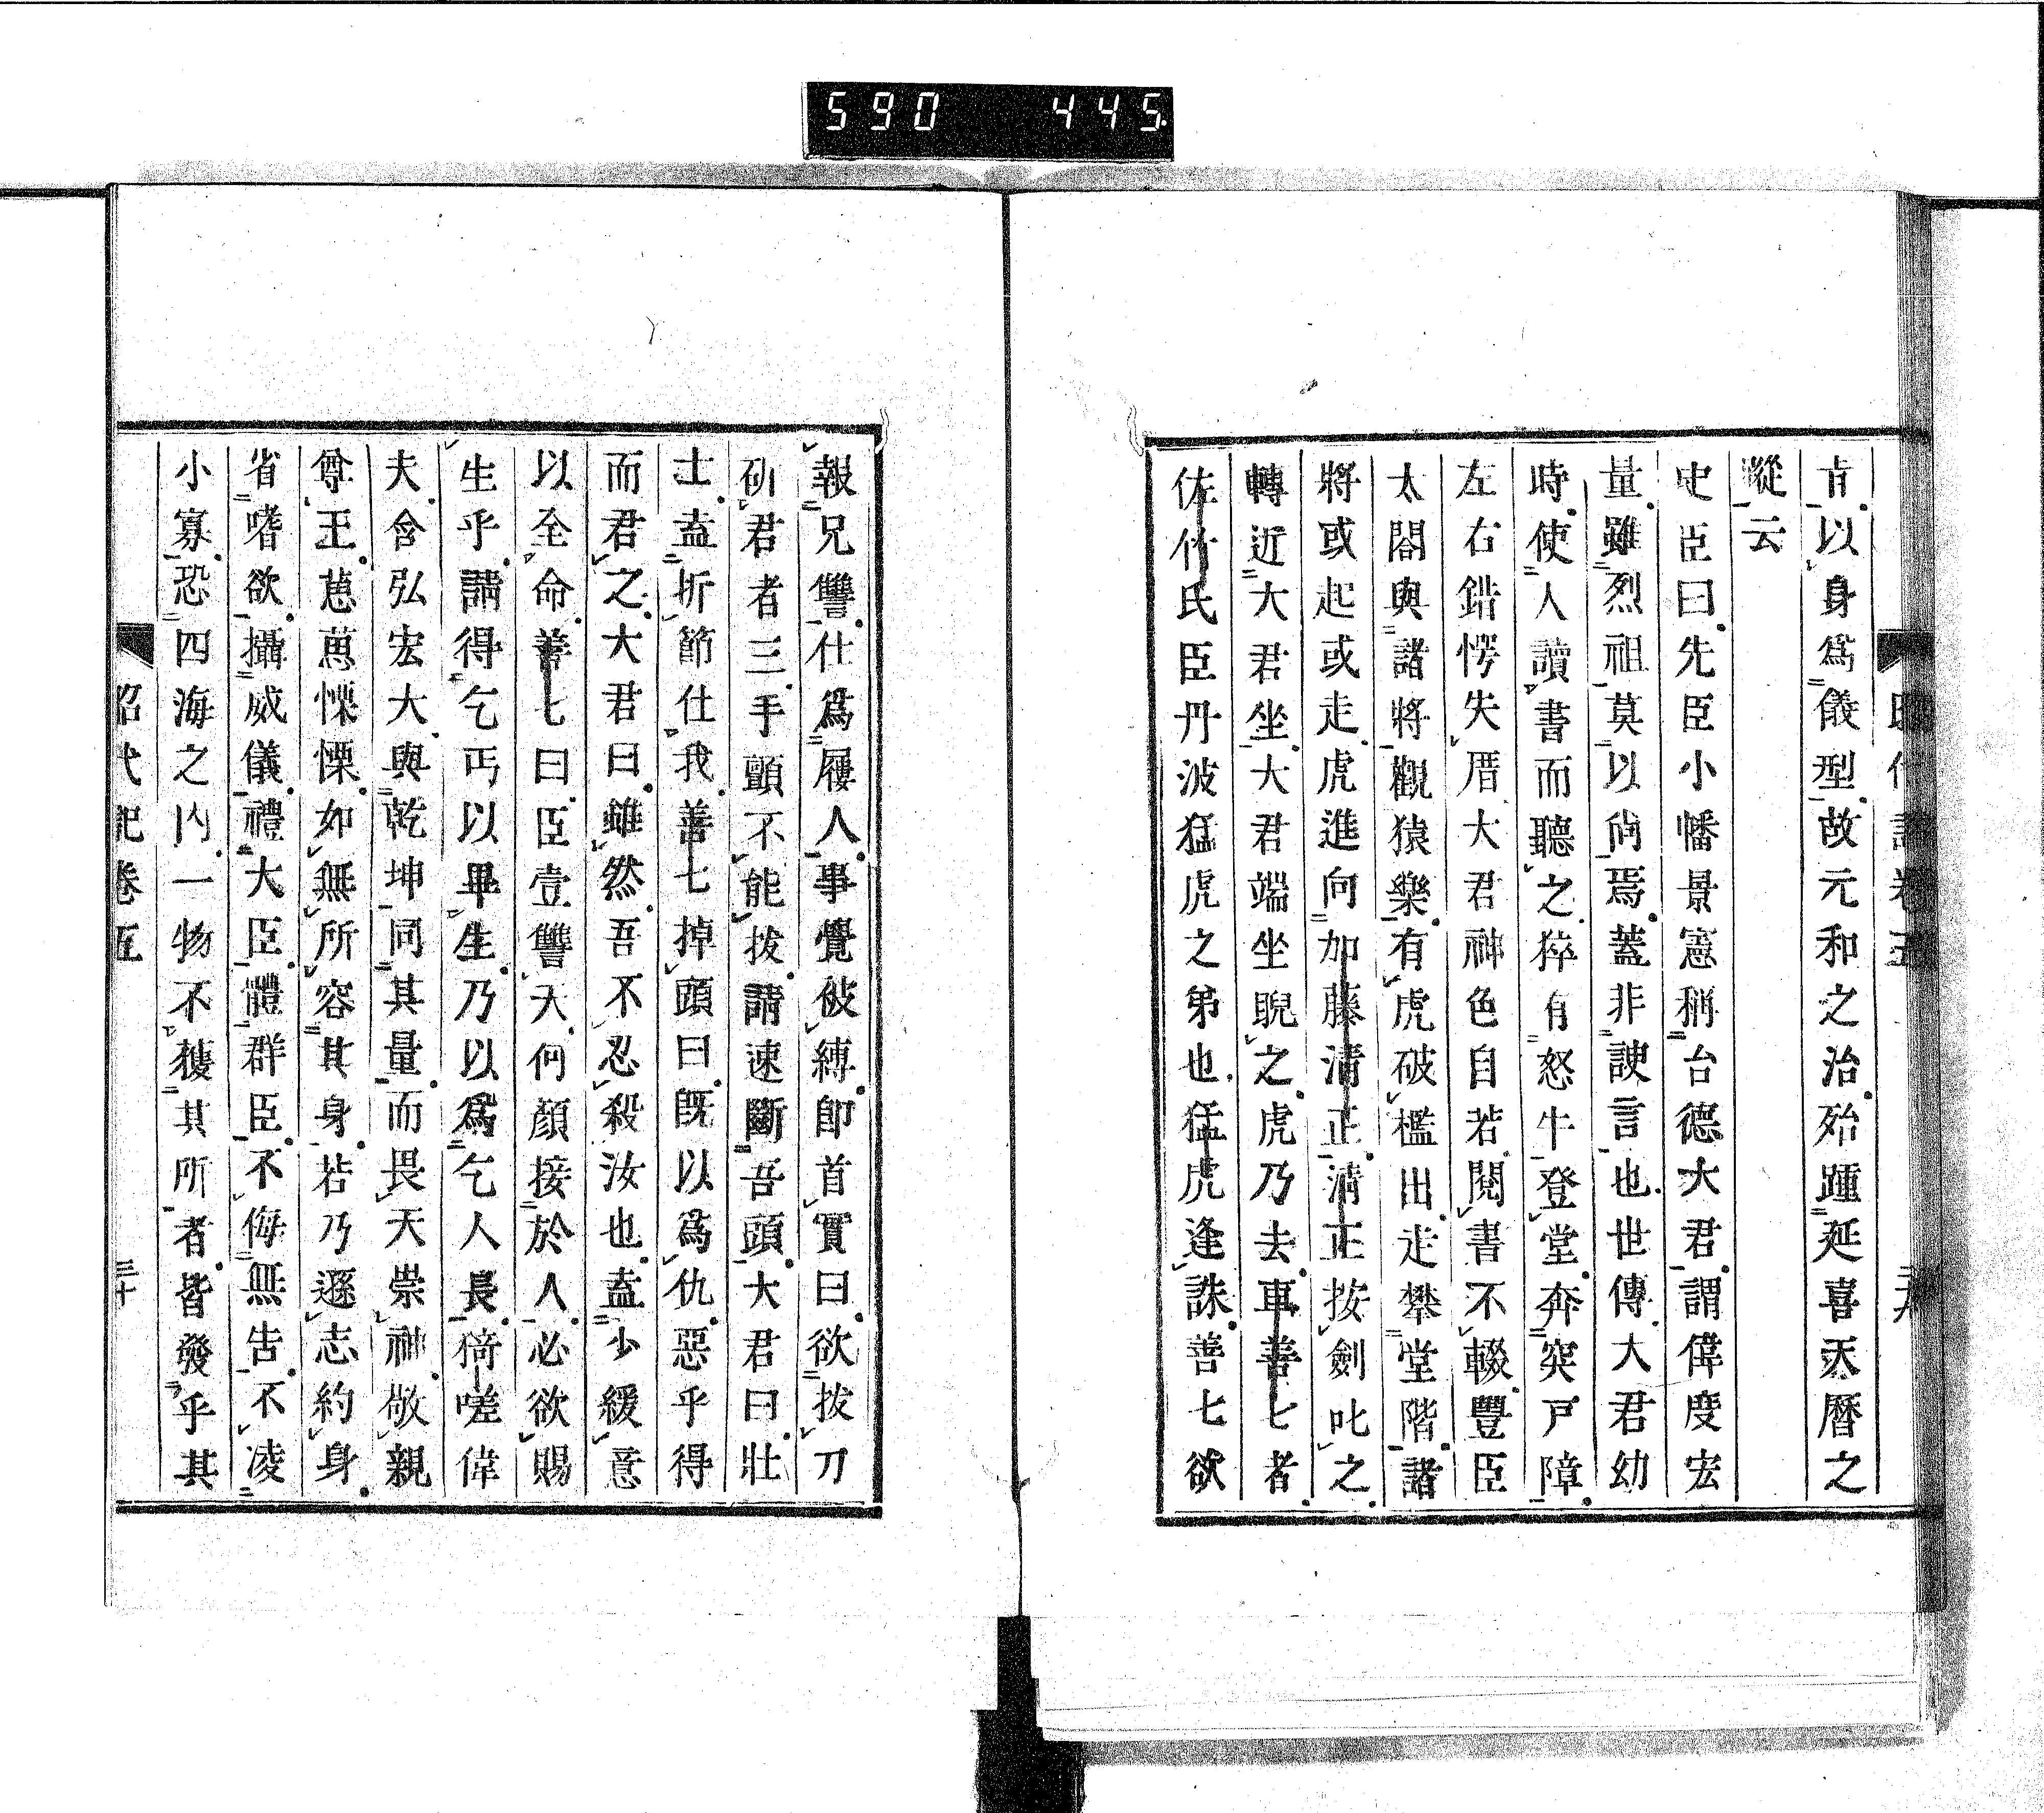 590 445.
昭代記卷五 二十九
肯以身爲儀型故元和之治殆踵延喜天曆之
蹤云
史臣曰先臣小幡景憲稱台德大君謂偉度宏
量雖烈祖莫以尚焉蓋非諛言也世傳大君幼
時使人讀書而聽之猝有怒牛登堂奔突戸障
左右錯愕失厝大君神色自若閱書不輟豐臣
太閤與諸將觀猿樂有虎破檻出走攀堂階諸
將或起或走虎進向加藤清正清正按劍叱之
轉近大君坐大君端坐睨之虎乃去車善七者
佐竹氏臣丹波猛虎之弟也猛虎逢誅善七欲
報兄讐仕爲屨人事覺被縛卽首實曰欲拔刀
斫君者三手顫不能拔請速斷吾頭大君曰壯
士盍折節仕我善七掉頭曰旣以爲仇惡乎得
而君之大君曰雖然吾不忍殺汝也盍少緩意
以全命善七曰臣壹讐天何顏接於人必欲賜
生乎請得乞丐以畢生乃以爲乞人長猗嗟偉
夫含弘宏大與乾坤同其量而畏天崇神敬親
尊王葸葸慄慄如無所容其身若乃遜志約身
省嗜欲攝威儀禮大臣體群臣不侮無告不凌
小寡恐四海之内一物不獲其所者皆發乎其
昭代記卷五 三十